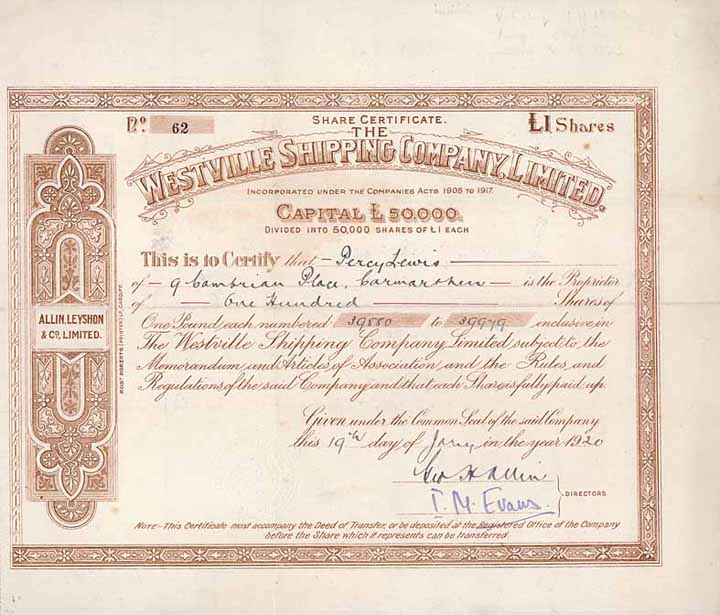 No. 62
SHARE CERTIFICATE.
£1 Shares
THE
WESTVILLE SHIPPING COMPANY, LIMITED.
INCORPORATED UNDER THE COMPANIES ACTS 1908 TO 1917.
CAPITAL £50,000.
DIVIDED INTO 50,000 SHARES OF £1 EACH
This is to Certify that Percy Lewis
of 9 Cambrian Place, Carmarthen is the Proprietor
of One Hundred Shares of
One Pound each numbered to 39979 inclusive in
The Westville Shipping Company Limited subject to the
Memorandum and Articles of Association and the Rules and
Regulations of the said Company and that each Share is fully paid up.
Given under the Common Seal of the said Company
this 19th day of Jany in the year 1920
Geo H Allin
T. M. Evans
DIRECTORS
NOTE - This Certificate must accompany the Deed of Transfer, or be deposited at the Registered Office of the Company
before the Share which it represents can be transferred
ALLIN, LEYSHON
& CO, LIMITED.
ROBT ROBERTS (PRINTER) LD, CARDIFF.